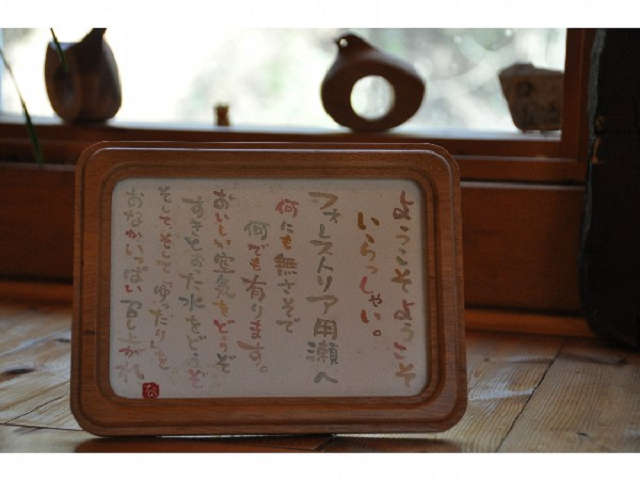 ようこそ ようこそ
いらっしゃい。
フォレストリア用瀬へ
何にも無さそで
何でも有ります。
おいしい空気をどうぞ
すきとおった水をどうぞ
そしてそして ゆったりと
おなかいっぱい召し上がれ